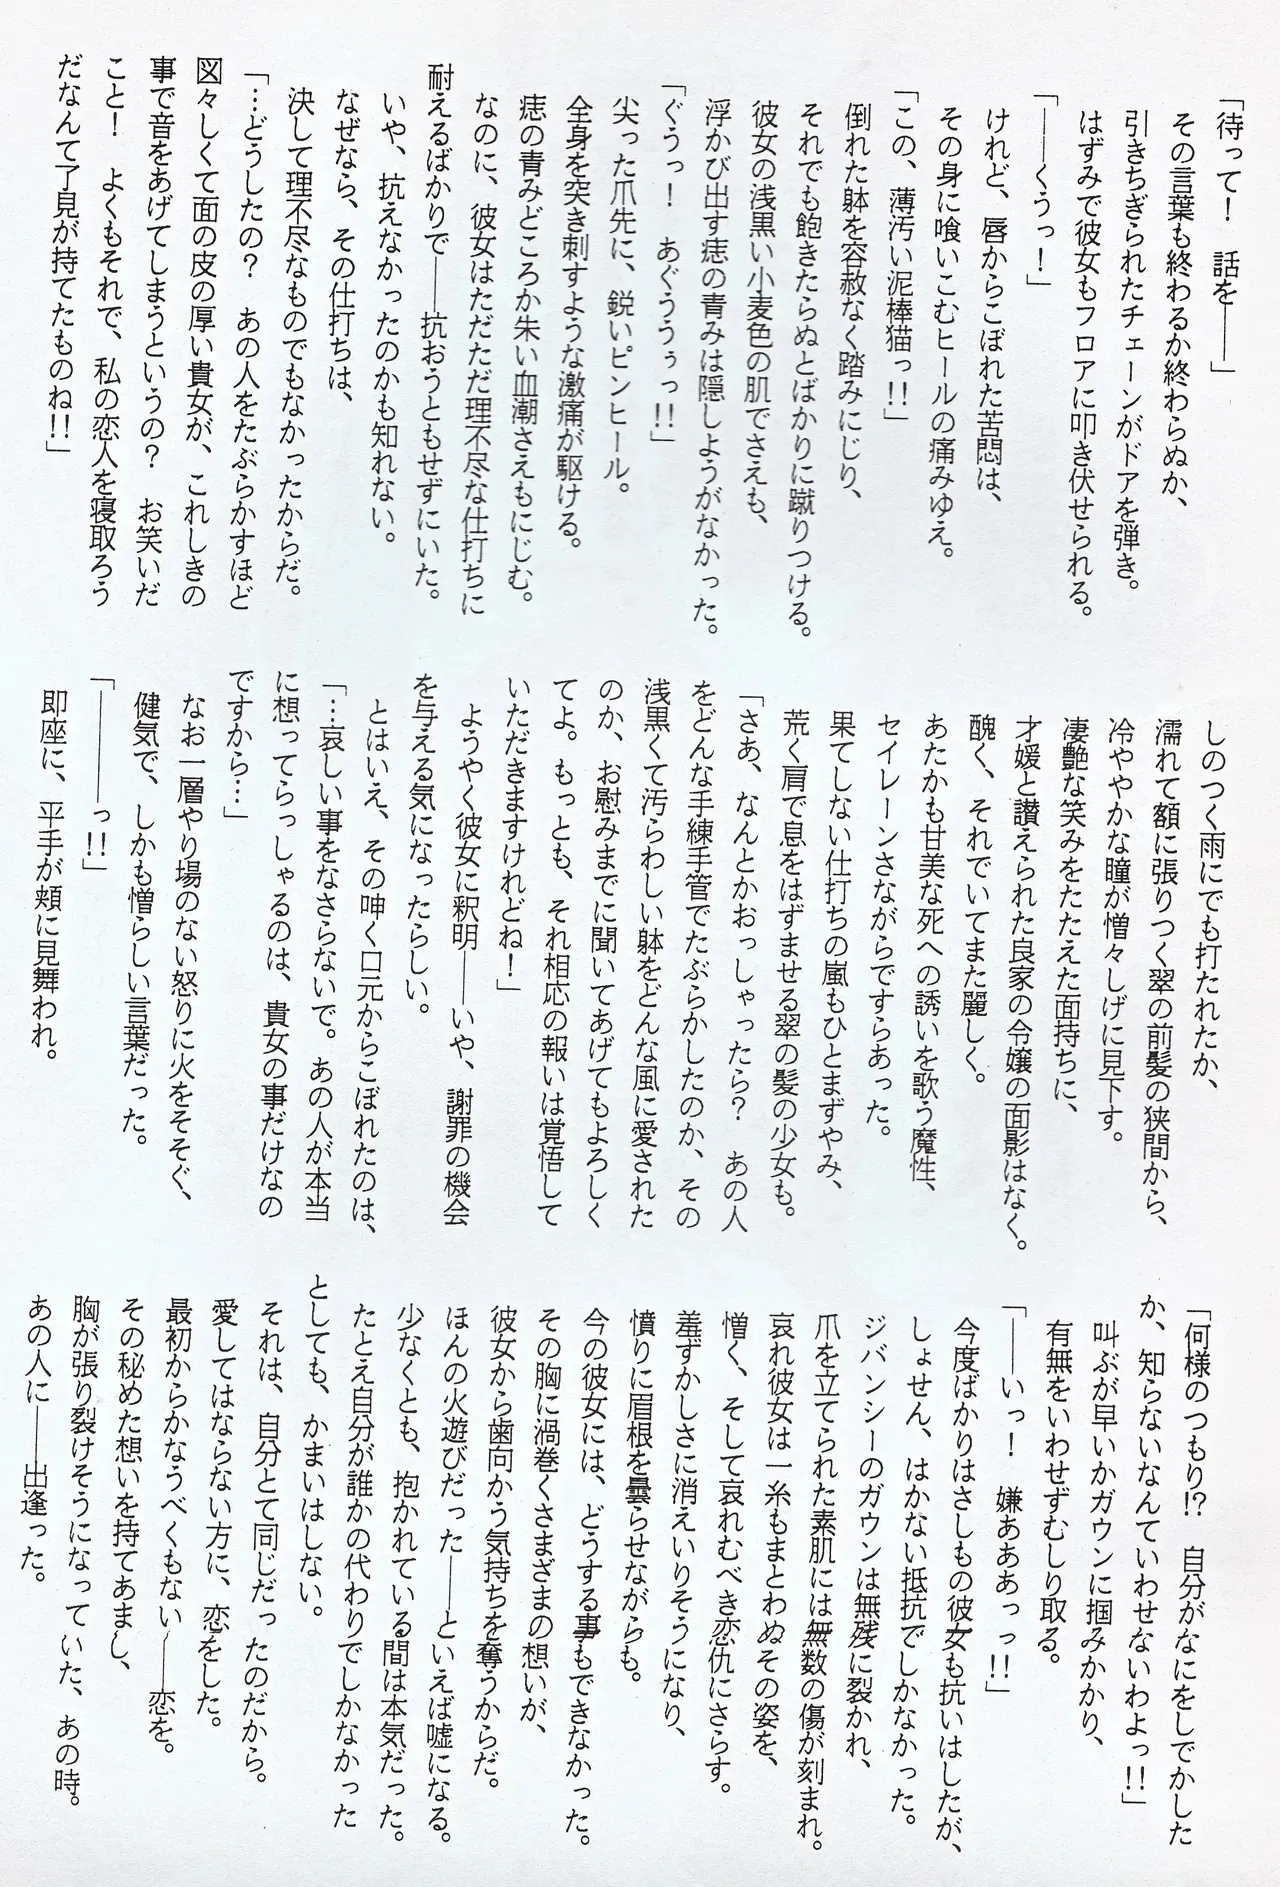 「待って！　話を――」
その言葉も終わるか終わらぬか、
引きちぎられたチェーンがドアを弾き。
はずみで彼女もフロアに叩き伏せられる。
「――くうっ！」
けれど、唇からこぼれた苦悶は、
その身に喰いこむヒールの痛みゆえ。
「この、薄汚い泥棒猫っ!!」
倒れた躰を容赦なく踏みにじり、
それでも飽きたらぬとばかりに蹴りつける。
彼女の浅黒い小麦色の肌でさえも、
浮かび出す痣の青みは隠しようがなかった。
「ぐうっ！　あぐううぅっ!!」
尖った爪先に、鋭いピンヒール。
全身を突き刺すような激痛が駆ける。
痣の青みどころか朱い血潮さえもにじむ。
なのに、彼女はただただ理不尽な仕打ちに
耐えるばかりで――抗おうともせずにいた。
いや、抗えなかったのかも知れない。
なぜなら、その仕打ちは、
決して理不尽なものでもなかったからだ。
「…どうしたの？　あの人をたぶらかすほど
図々しくて面の皮の厚い貴女が、これしきの
事で音をあげてしまうというの？　お笑いだ
こと！　よくもそれで、私の恋人を寝取ろう
だなんて了見が持てたものね!!」
しのつく雨にでも打たれたか、
濡れて額に張りつく翠の前髪の狭間から、
冷ややかな瞳が憎々しげに見下す。
凄艶な笑みをたたえた面持ちに、
才媛と讃えられた良家の令嬢の面影はなく。
醜く、それでいてまた麗しく。
あたかも甘美な死への誘いを歌う魔性、
セイレーンさながらですらあった。
果てしない仕打ちの嵐もひとまずやみ、
荒く肩で息をはずませる翠の髪の少女も。
「さあ、なんとかおっしゃったら？　あの人
をどんな手練手管でたぶらかしたのか、その
浅黒くて汚らわしい躰をどんな風に愛された
のか、お慰みまでに聞いてあげてもよろしく
てよ。もっとも、それ相応の報いは覚悟して
いただきますけれどね！」
ようやく彼女に釈明――いや、謝罪の機会
を与える気になったらしい。
とはいえ、その呻く口元からこぼれたのは、
「…哀しい事をなさらないで。あの人が本当
に想ってらっしゃるのは、貴女の事だけなの
ですから…」
なお一層やり場のない怒りに火をそそぐ、
健気で、しかも憎らしい言葉だった。
「――――っ!!」
即座に、平手が頬に見舞われ。
「何様のつもり!?　自分がなにをしでかした
か、知らないなんていわせないわよっ!!」
叫ぶが早いかガウンに掴みかかり、
有無をいわせずむしり取る。
「――いっ！　嫌あああっっ!!」
今度ばかりはさしもの彼女も抗いはしたが、
しょせん、はかない抵抗でしかなかった。
ジバンシーのガウンは無残に裂かれ、
爪を立てられた素肌には無数の傷が刻まれ。
哀れ彼女は一糸もまとわぬその姿を、
憎く、そして哀れむべき恋仇にさらす。
羞ずかしさに消えいりそうになり、
憤りに眉根を曇らせながらも。
今の彼女には、どうする事もできなかった。
その胸に渦巻くさまざまの想いが、
彼女から歯向かう気持ちを奪うからだ。
ほんの火遊びだった――といえば嘘になる。
少なくとも、抱かれている間は本気だった。
たとえ自分が誰かの代わりでしかなかった
としても、かまいはしない。
それは、自分とて同じだったのだから。
愛してはならない方に、恋をした。
最初からかなうべくもない――恋を。
その秘めた想いを持てあまし、
胸が張り裂けそうになっていた、あの時。
あの人に――出逢った。